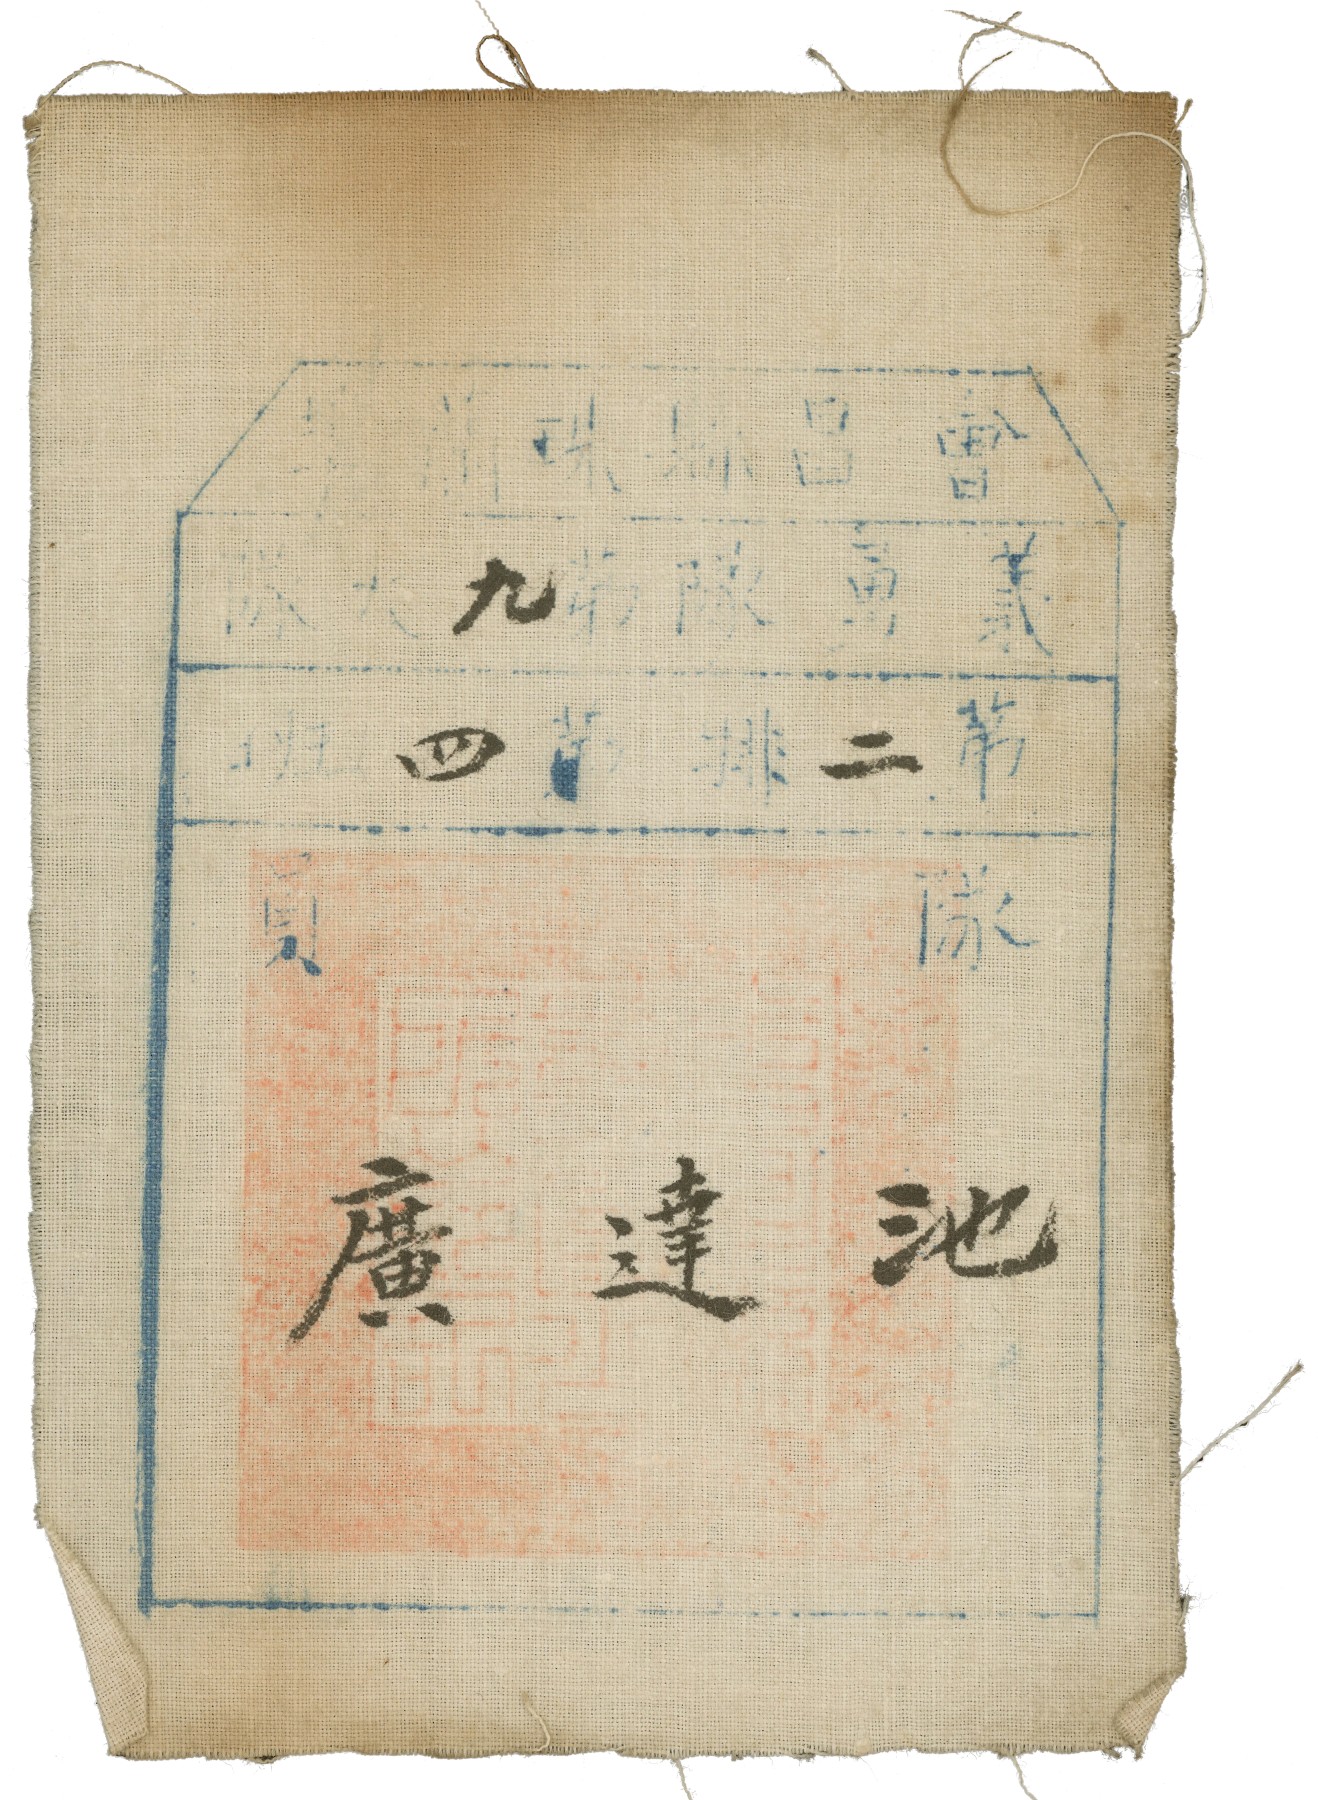 會昌縣珠蘭
義勇隊第九大隊
第二排第四班
隊員
池達廣